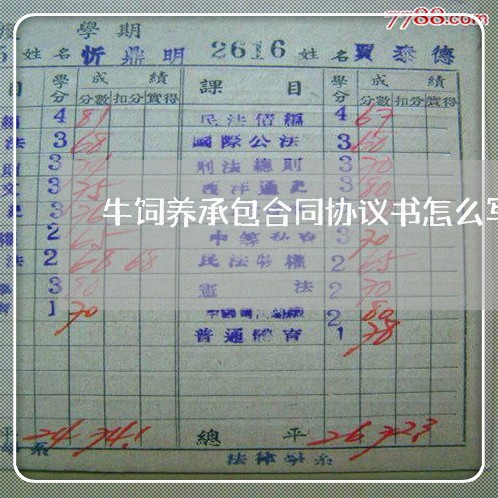 7788.com
學期
5 姓名 忻鼎明 2616 姓名 賈泰德
目 學分 成績 課目 學分 成績
分數 扣分 實得 分數 扣分 實得
4 81 民法債編 4 67
法 3 68 國際公法 3 60
3 刑法總則 3 70
3 75 西洋通史 3 80
牛饲养承包合同协议书怎么写
2 65 3 70
法 2 68 68 民法物權 2 65
3 80 憲法 2 70
1 70 2 80
普通體育 1 78
平 24 74.1 總平 26 72.3
系 法律學系